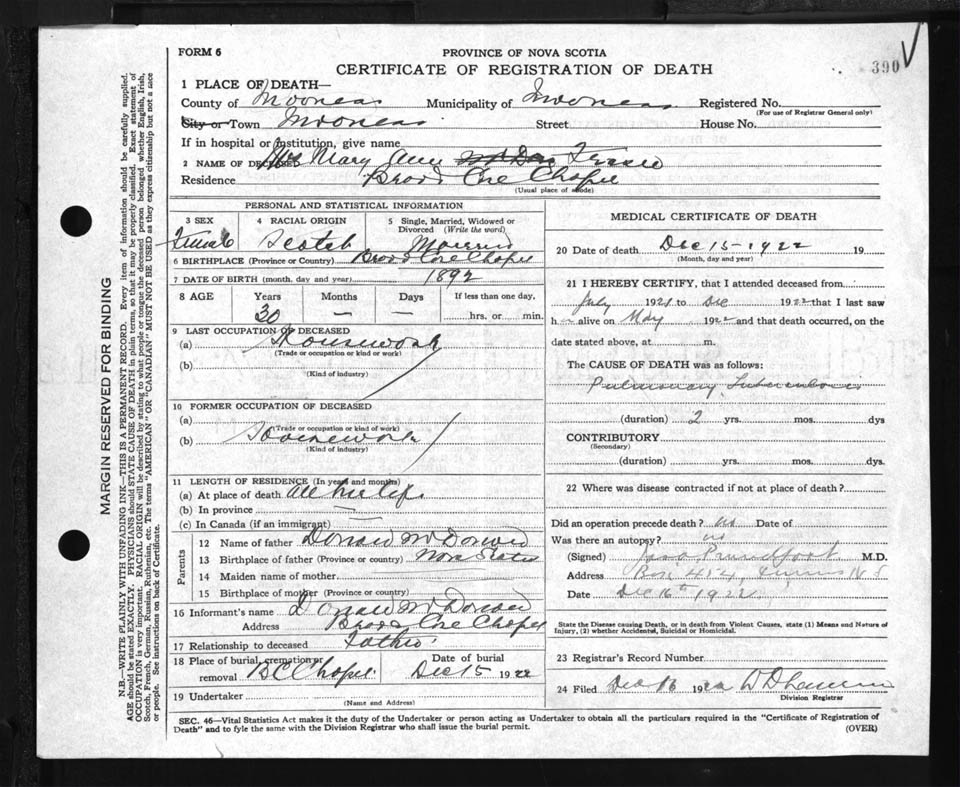 FORM 6
PROVINCE OF NOVA SCOTIA
CERTIFICATE OF REGISTRATION OF DEATH
390
1 PLACE OF DEATH—
County of Municipality of Registered No.
(For use of Registrar General only)
City or Town Street House No.
If in hospital or institution, give name
2 NAME OF DECEASED Mrs Mary Ann
Residence Broad Cove Chapel
(Usual place of abode)
PERSONAL AND STATISTICAL INFORMATION
3 SEX
Female
4 RACIAL ORIGIN
Scotch
5 Single, Married, Widowed or Divorced (Write the word)
Married
6 BIRTHPLACE (Province or Country) Broad Cove Chapel
7 DATE OF BIRTH (month, day and year) 1892
8 AGE Years Months Days If less than one day,
30 — — hrs. or min.
9 LAST OCCUPATION OF DECEASED
(a) Housework
(Trade or occupation or kind or work)
(b)
(Kind of industry)
10 FORMER OCCUPATION OF DECEASED
(a)
(Trade or occupation or kind of work)
(b) Housework
(Kind of industry)
11 LENGTH OF RESIDENCE (In years and months)
(a) At place of death all her life
(b) In province —
(c) In Canada (if an immigrant) —
Parents
12 Name of father Donald
13 Birthplace of father (Province or country) Nova Scotia
14 Maiden name of mother
15 Birthplace of mother (Province or country)
16 Informant's name Donald
Address Broad Cove Chapel
17 Relationship to deceased Father
18 Place of burial, cremation or removal B C Chapel Date of burial Dec 15 1922
19 Undertaker
(Name and Address)
MEDICAL CERTIFICATE OF DEATH
20 Date of death Dec 15 - 1922 19
(Month, day and year)
21 I HEREBY CERTIFY, that I attended deceased from
July 1921 to Dec 1922 that I last saw
h alive on May 1922 and that death occurred, on the
date stated above, at m.
The CAUSE OF DEATH was as follows:
Pulmonary Tuberculosis
(duration) 2 yrs. mos. dys
CONTRIBUTORY
(Secondary)
(duration) yrs. mos. dys.
22 Where was disease contracted if not at place of death?
Did an operation precede death? no Date of
Was there an autopsy? no
(Signed) M.D.
Address Box 454, N S
Date Dec 16th 1922
State the Disease causing Death, or in death from Violent Causes, state (1) Means and Nature of
Injury, (2) whether Accidental, Suicidal or Homicidal.
23 Registrar's Record Number
24 Filed Dec 16 1922
Division Registrar
SEC. 46—Vital Statistics Act makes it the duty of the Undertaker or person acting as Undertaker to obtain all the particulars required in the "Certificate of Registration of
Death" and to fyle the same with the Division Registrar who shall issue the burial permit. (OVER)
MARGIN RESERVED FOR BINDING
N.B.—WRITE PLAINLY WITH UNFADING INK—THIS IS A PERMANENT RECORD. Every item of information should be carefully supplied.
AGE should be stated EXACTLY. PHYSICIANS should STATE CAUSE OF DEATH in plain terms, so that it may be properly classified. Exact statement of
OCCUPATION is very important. RACIAL ORIGIN will be described by stating to what people or tongue the deceased person belonged whether English, Irish,
Scotch, French, German, Russian, Ruthenian, etc. The terms "AMERICAN" OR "CANADIAN" MUST NOT BE USED as they express citizenship but not a race
or people. See instructions on back of Certificate.